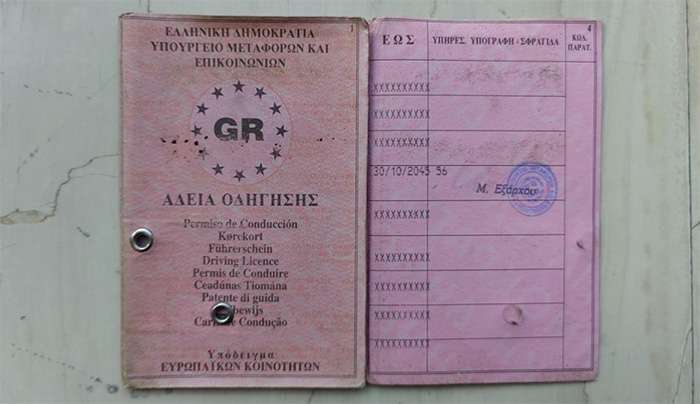 1
ΕΛΛΗΝΙΚΗ ΔΗΜΟΚΡΑΤΙΑ
ΥΠΟΥΡΓΕΙΟ ΜΕΤΑΦΟΡΩΝ ΚΑΙ
ΕΠΙΚΟΙΝΩΝΙΩΝ
GR
ΑΔΕΙΑ ΟΔΗΓΗΣΗΣ
Permiso de Conducción
Kørekort
Führerschein
Driving Licence
Permis de Conduire
Ceadúnas Tiomána
Patente di guida
bewijs
Carta de Condução
Υπόδειγμα
ΕΥΡΩΠΑΪΚΩΝ ΚΟΙΝΟΤΗΤΩΝ
4
ΕΩΣ ΥΠΗΡΕΣ. ΥΠΟΓΡΑΦΗ - ΣΦΡΑΓΙΔΑ ΚΩΔ. ΠΑΡΑΤ.
XXXXXXXXXX
XXXXXXXXXX
XXXXXXXXXX
30/10/2045 56
Μ. Εξάρχου
XXXXXXXXXX
XXXXXXXXXX
XXXXXXXXXX
XXXXXXXXXX